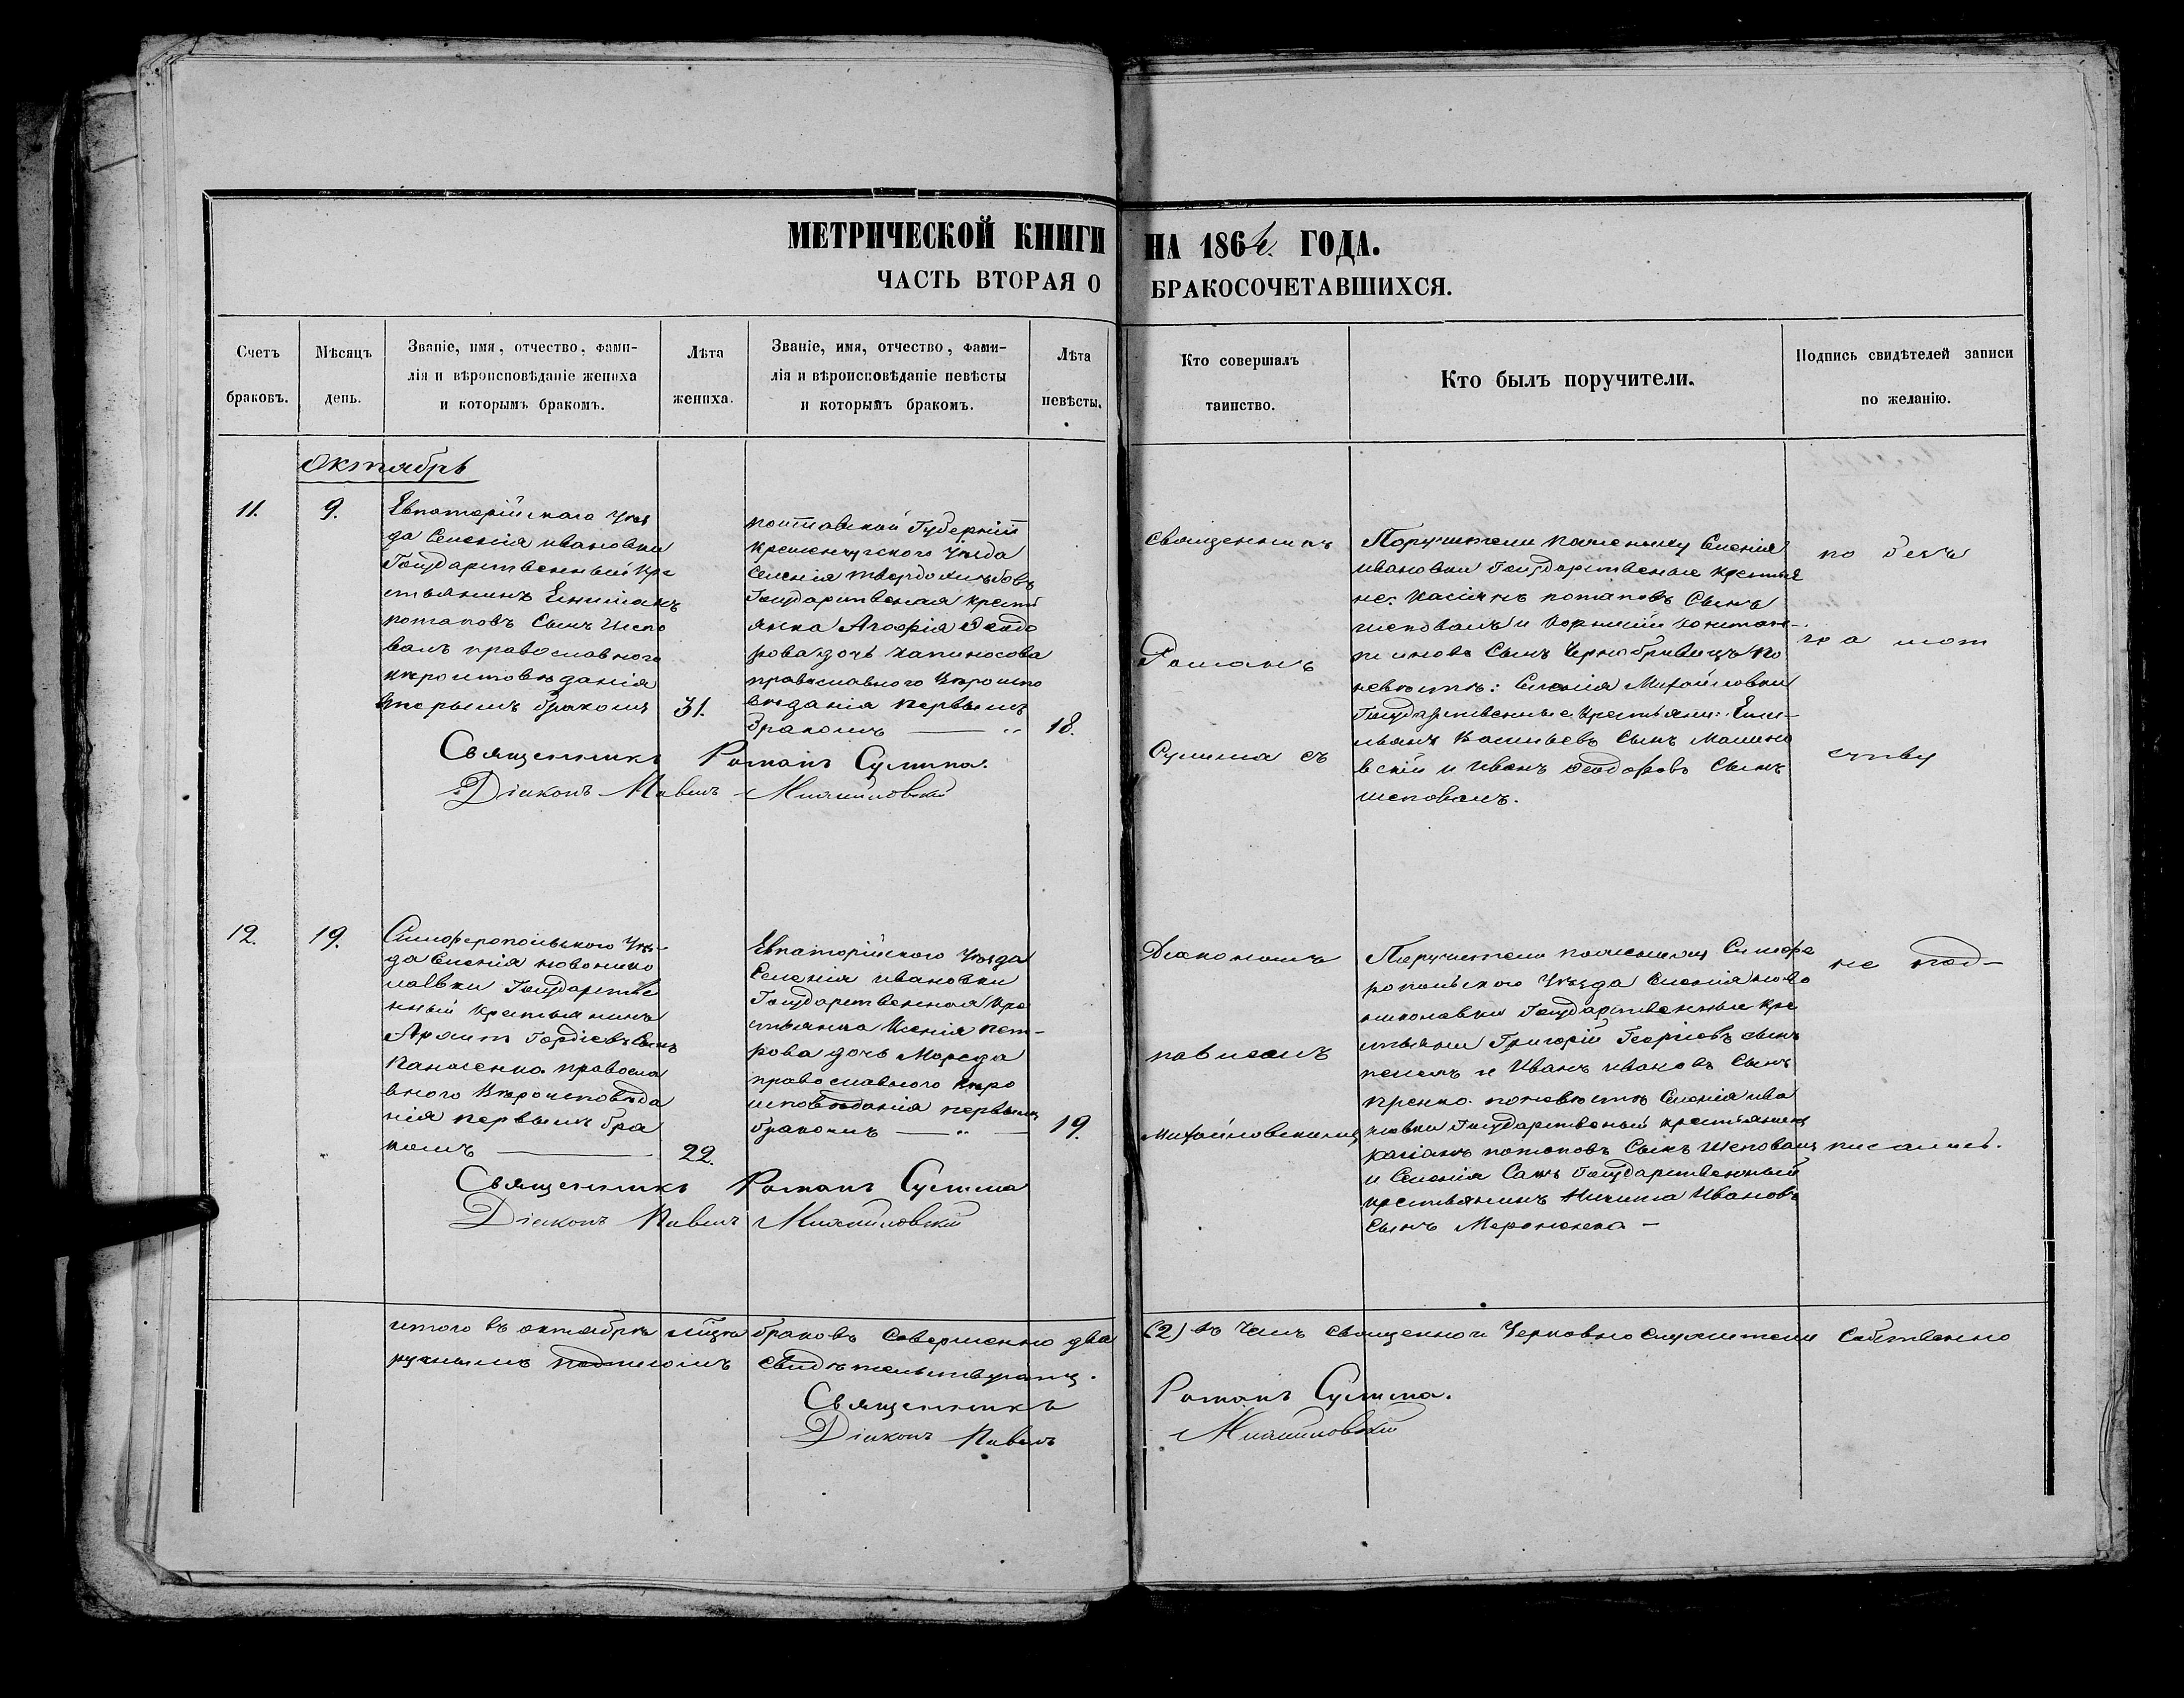 МЕТРИЧЕСКОЙ КНИГИ НА 1864 ГОДА.
ЧАСТЬ ВТОРАЯ О БРАКОСОЧЕТАВШИХСЯ.
Счетъ
браковъ.
Мѣсяцъ
день.
Званіе, имя, отчество, фами-
лія и вѣроисповѣданіе жениха
и которымъ бракомъ.
Лѣта
жениха.
Званіе, имя, отчество, фами-
лія и вѣроисповѣданіе невѣсты
и которымъ бракомъ.
Лѣта
невѣсты.
Кто совершалъ
таинство.
Кто былъ поручители.
Подпись свидѣтелей записи
по желанію.
октябрь
11.
9.
Евпаторійского Уѣз
да Селенія ивановки
Государственный кре
стьянинъ
потаповъ Сынъ
православного
вѣроисповѣданія
вторымъ бракомъ
31.
полтавской Губерніи
кременчугского Уѣзда
Селенія твердохлѣбовъ
Государственая крестъ
янка Агафія Феодо
рова дочь капиносова
православного Вѣроиспо
вѣданія первымъ
Бракомъ
18.
Священникъ
Романъ
Сулима съ
Поручители по жениху Селенія
ивановки Государственые крестья
не: Касіянъ потаповъ Сынъ
шеповалъ и Корнилій констан-
тиновъ Сынъ Чернобривецъ по
невѣстѣ: Селенія Михайловки
Государственные крестьяни: Еми-
льянъ Васильевъ Сынъ Малино
вскій и Иванъ Феодоровъ Сынъ
шеповалъ.
по безъ
гра мот
ству
Священникъ Романъ Сулима.
Діаконъ Павелъ Михайловскій
12.
19.
Симферопольского Уѣз-
да Селенія новонико
лаевки Государстве
нный крестьянинъ
Гордіевъ Сынъ
Панченко православ
вного Вѣроисповѣда
нія первымъ бра
комъ
22.
Евпаторійского Уѣзда
Селенія ивановки
Государственная кре
стьянка Ксенія пет-
рова дочь
православного вѣро
исповѣданія первымъ
бракомъ
19.
Діакономъ
павломъ
Михайловскимъ
Поручители по жениху Симфе
ропольского Уѣзда Селенія ново
николавки Государственные кре
стьяни Григорій Георгіевъ сынъ
и Иванъ ивановъ Сынъ
по невѣстѣ Селенія ива
новки Государственый крестьянинъ
касіянъ потаповъ Сынъ Шеповалъ
и Селенія Сакъ Государственный
крестьянинъ Никита Ивановъ
Сынъ
не под-
писались.
Священникъ Романъ Сулима
Діаконъ Павелъ Михайловскій
итого въ октябрѣ мѣсяцѣ браковъ Совершенно два (2) въ чемъ священно и Церковно Служители Собственно
ручнымъ подписомъ свидѣтельствуютъ.
Священникъ Романъ Сулима.
Діаконъ Павелъ Михайловскій